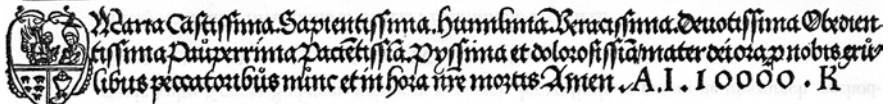 Maria Castissima. Sapientissima. Humilima. Veracissima. Deuotissima Obedien
tissima Pauperrima Paciētissīa. Pyssima et dolorosissīa mater dei ora p nobis exū
libus peccatoribus nunc et in hora nr̄e mortis Amen. A. I. 10000. R